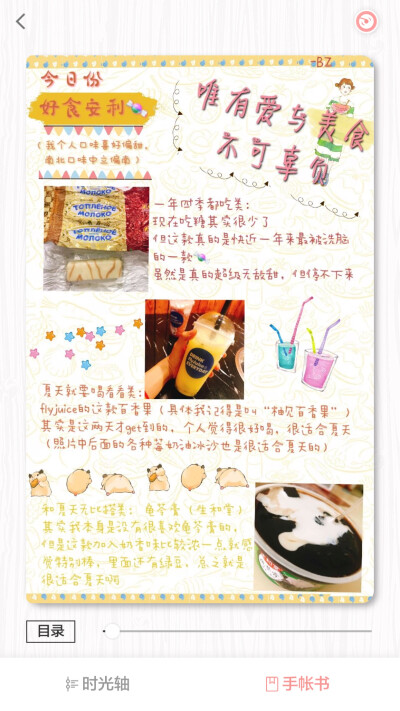 -BZ
今日份
好食安利
(我个人口味喜好偏甜,
南北口味中立偏南)
唯有爱与美食
不可辜负
ТОПЛЁНОЕ
МОЛОКО
ТОПЛЁНОЕ
МОЛОКО
一年四季都吃类:
现在吃糖其实很少了
但这款真的是快近一年来最被洗脑
的一款
虽然是真的超级无敌甜,但停不下来
夏天就要喝看看类:
flyjuice的这款百香果(具体我记得是叫“柚见百香果”)
其实是这两天才get到的,个人觉得很好喝,很适合夏天
(照片中后面的各种莓奶油冰沙也是很适合夏天的)
和夏天无比搭类:龟苓膏(生和堂)
其实我本身是没有很喜欢龟苓膏的,
但是这款加入奶香味比较浓一点就感
觉特别棒,里面还有绿豆,总之就是
很适合夏天啊
目录
时光轴
手帐书